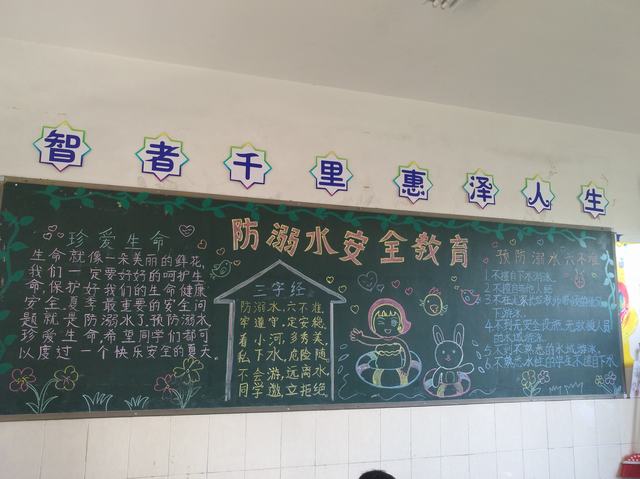 智者千里惠泽人生
防溺水安全教育
珍爱生命
生命就像一朵美丽的鲜花,
我们一定要好好的呵护生
命,保护好我们的生命健康
安全,夏季最重要的安全问
题就是防溺水了.预防溺水,
珍爱生命,希望同学们都可
以度过一个快乐安全的夏天。
三字经
防溺水,六不准,
牢遵守,定安稳,
看小河,多秀美,
私下水,危险随
不会游,远离水,
同学邀,立拒绝
预防溺水六不准
1.不擅自下水游泳.
2.不擅自与他人结
3.不在无家长或教师带领的情况
下游泳.
4.不到无安全设施、无救援人员
的水域游泳.
5.不到不熟悉的水域游泳.
6.不熟水性的学生不擅自下水